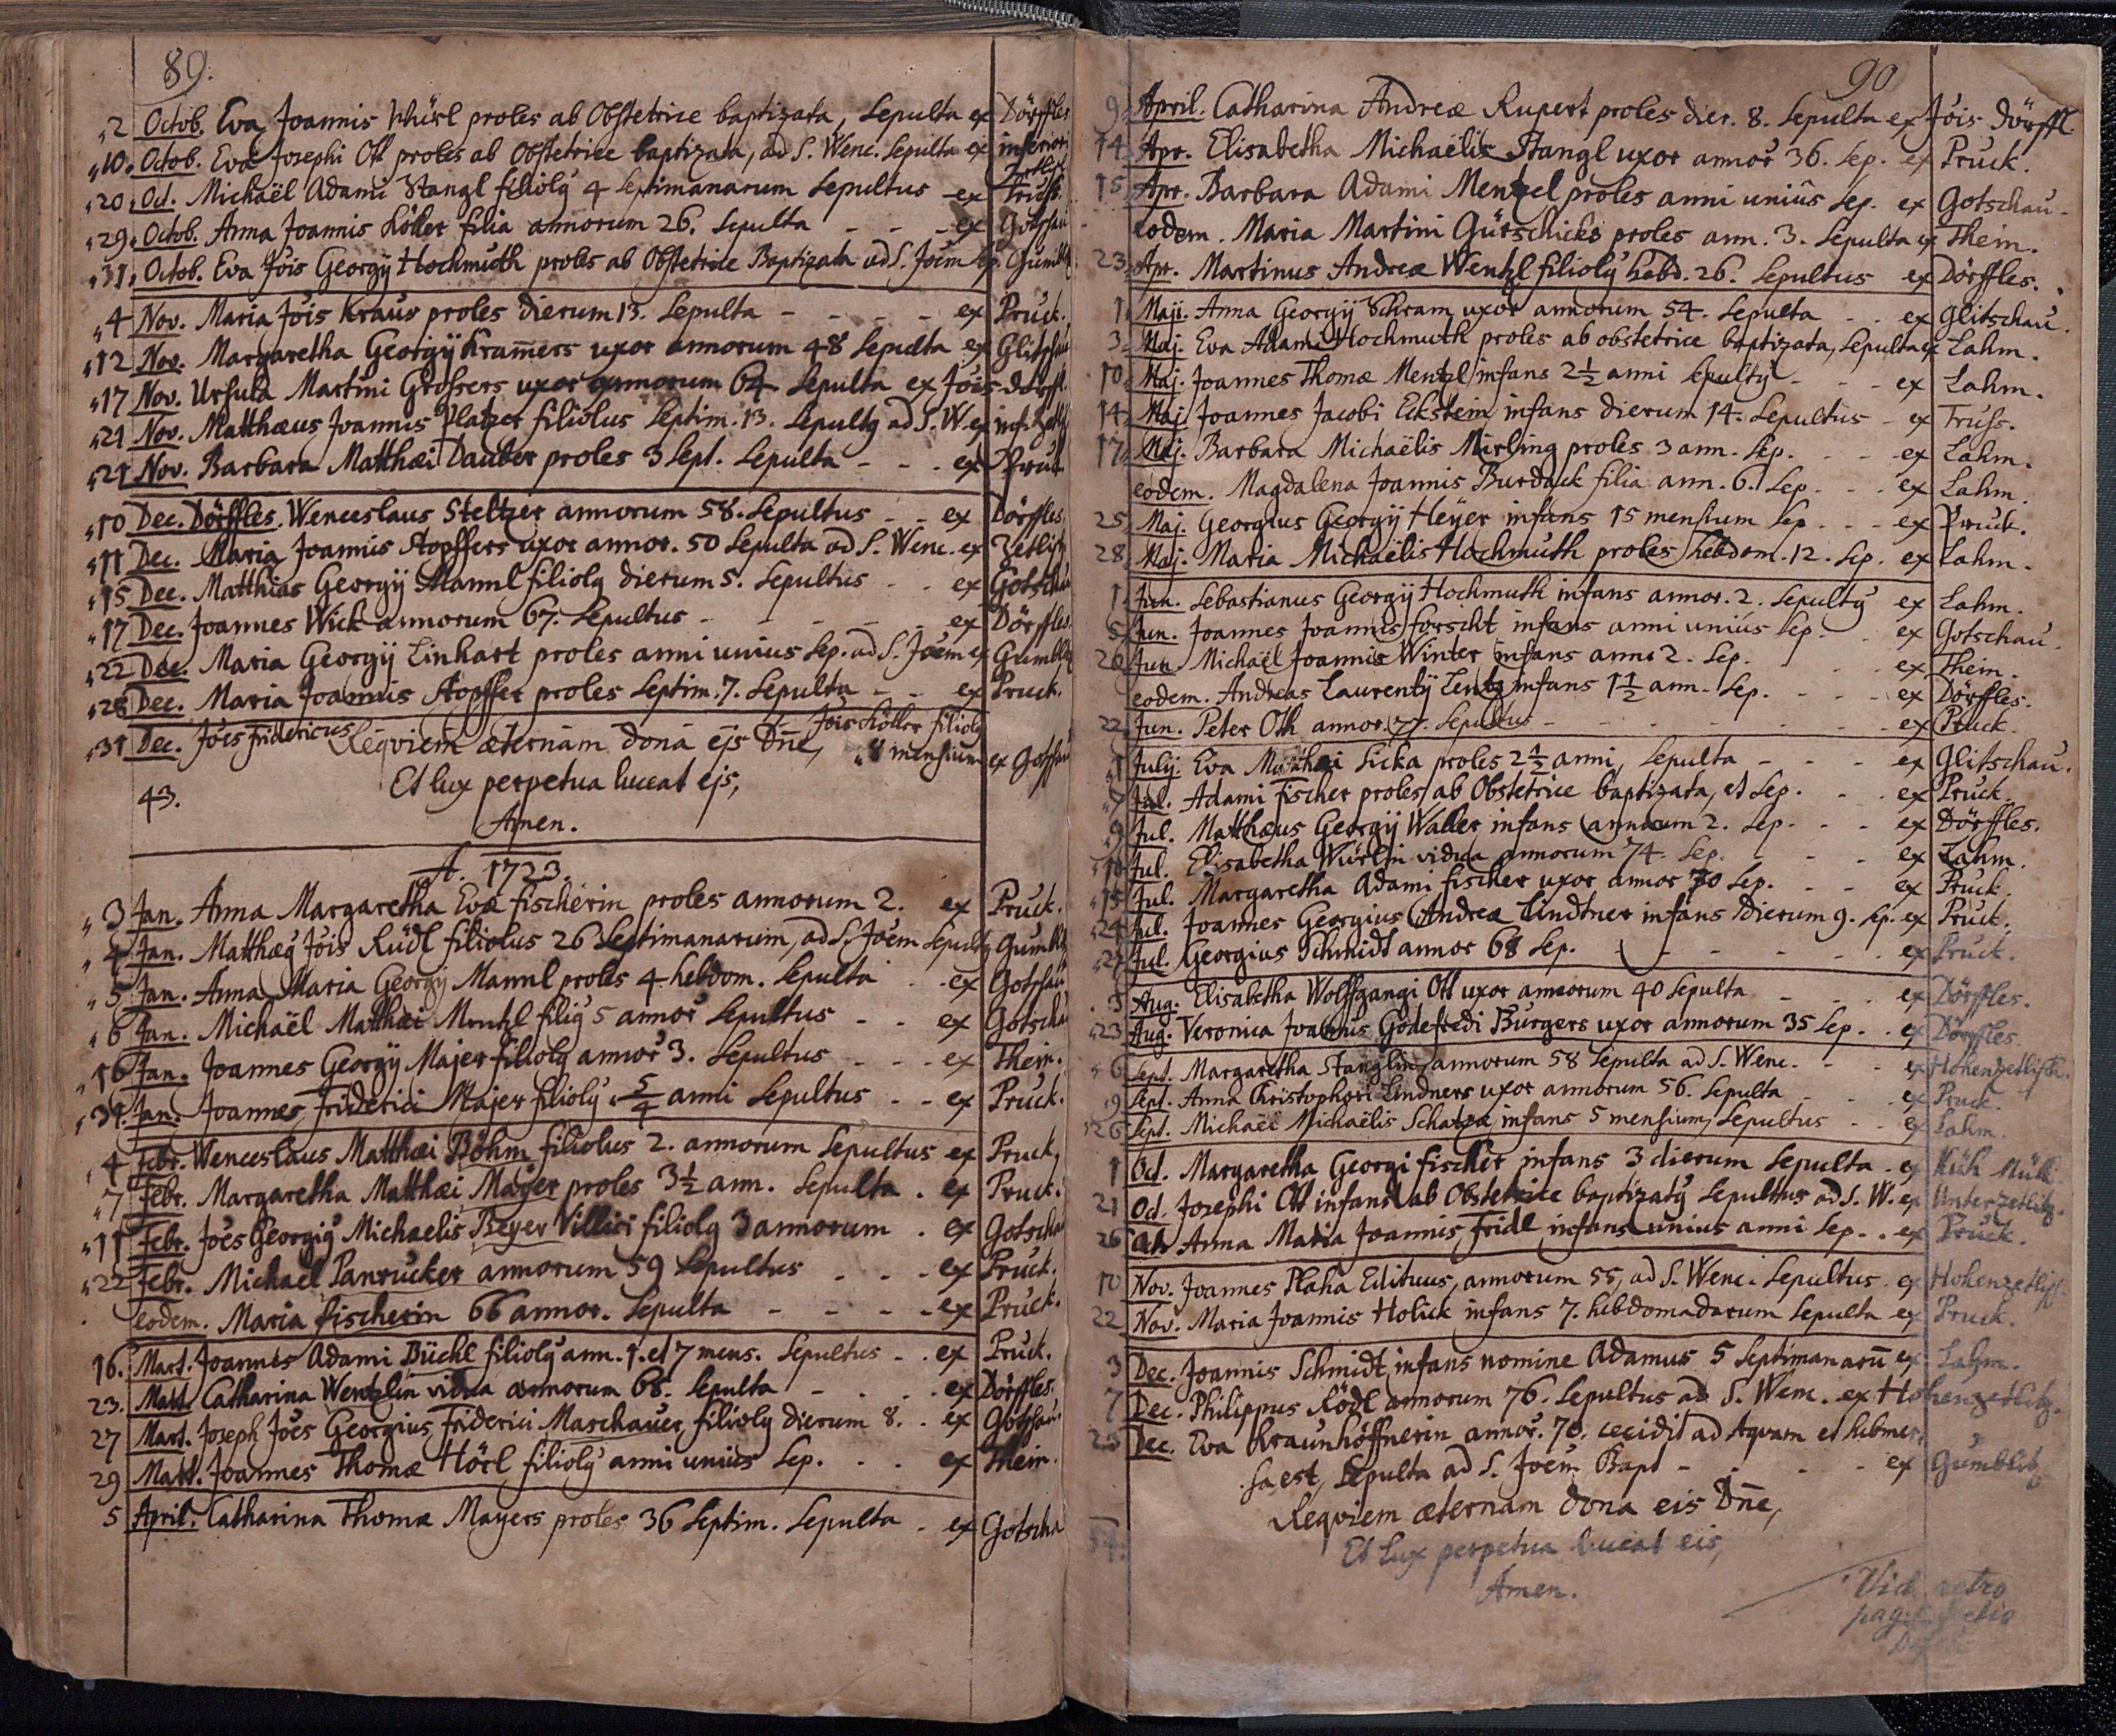 89.
2 Octob. Eva Joannis Würl proles ab Obstetrice baptizata, Sepulta ex Dörffles
10. Octob. Eva Josephi Ott proles ab Obstetrice baptizata, ad S. Wenc. Sepulta ex inferiori
20. Oct. Michaël Adami Stangl filiolꝰ 4 Septimanarum Sepultus ex Truss.
29. Octob. Anna Joannis Köller filia annorum 26. Sepulta - - - ex Gotschau
31. Octob. Eva Jöis Georgÿ Hochmuth proles ab Obstetrice Baptizata ad S. Joem Sep. Gumbl
4 Nov. Maria Jöis Kraus proles dierum 13. Sepulta - - - - - ex Pruck.
12 Nov. Margaretha Georgÿ Kram̄ers uxor annorum 48 Sepulta ex Glitschau
17 Nov. Ursula Martini Grossers uxor annorum 64 Sepulta ex Jöis-Dörffl.
21 Nov. Matthæus Joannis Platzer filiolus Septim. 13. Sepultꝰ ad S. W. ex inf. Zetl
21 Nov. Barbara Matthæi Dauber proles 3 Sept. Sepulta - - - ex Pruck.
10 Dec. Dörffles. Wenceslaus Steltzer annorum 58. Sepultus - - ex Dörffles.
11 Dec. Maria Joannis Stopffers uxor annor. 50 Sepulta ad S. Wenc. ex Zetlisch
15 Dec. Matthias Georgÿ Mannl filiolꝰ dierum 5. Sepultus - - ex Gotschau
17 Dec. Joannes Wick annorum 67. Sepultus - - - - - ex Dörffles.
22 Dec. Maria Georgÿ Linhart proles anni unius Sep. ad S. Joem ex Gumbl
28 Dec. Maria Joannis Stopffer proles Septim. 7. Sepulta - - ex Pruck.
31 Dec. Jöes Fridericus Jöis Köller filiolꝰ 8 mensium ex Gotschau
Reqviem æternam dona ejs Dn̄e,
43. Et lux perpetua luceat ejs,
Amen.
A. 1723.
3 Jan. Anna Margaretha Eva fischerin proles annorum 2. ex Pruck.
4 Jan. Matthæꝰ Jöis Rüdl filiolus 26 Septimanarum, ad S. Joem Sepultꝰ Gumbl
5 Jan. Anna Maria Georgÿ Mannl proles 4 hebdom. Sepulta - - ex Gotschau
6 Jan. Michaël Matthæi Mentzl filiꝰ 5 annor̄ Sepultus - - ex Gotschau
16 Jan. Joannes Georgÿ Majer filiolꝰ annor̄ 3. Sepultus - - - ex Thein.
31. Jan. Joannes Friderici Majer filiolꝰ 5/4 anni Sepultus - - ex Pruck.
4 Febr. Wenceslaus Matthæi Böhm filiolus 2. annorum Sepultus ex Pruck.
7 Febr. Margaretha Matthæi Majer proles 3½ ann. Sepulta . ex Pruck.
11 Febr. Jöes Georgiꝰ Michaelis Beyer Villici filiolꝰ 3 annorum . ex Gotschau
22 Febr. Michael Panrucker annorum 59 Sepultus - - - ex Pruck.
eodem. Maria fischerin 66 annor. Sepulta - - - - ex Pruck.
16. Mart. Joannes Adami Büchl filiolꝰ ann. 1. et 7 mens. Sepultus - . ex Pruck.
23. Mart. Catharina Wentzlin vidua annorum 68. Sepulta - - - . ex Dörffles.
27 Mart. Joseph Jöes Georgius Friderici Maschauer filiolꝰ dierum 8. . ex Gotschau.
29 Mart. Joannes Thomæ Hörl filiolꝰ anni unius Sep. . . ex Thein.
5 April. Catharina Thomæ Mayers proles 36 Septim. Sepulta . ex Gotscha
90
9. April. Catharina Andreæ Rupert proles dier. 8. Sepulta ex Jöis Dörffl.
14. Apr. Elisabetha Michaëlis Stangl uxor annor̄ 36. Sep. ex Pruck.
15 Apr. Barbara Adami Mentzel proles anni unius Sep. ex Gotschau.
eodem. Maria Martini Gürschicks proles ann. 3. Sepulta ex Thein.
23. Apr. Martinus Andreæ Wentzl filiolꝰ hebd. 26. Sepultus ex Dörffles.
1. Maji. Anna Georgÿ Schram uxor annorum 54. Sepulta - . ex Glitschau.
3. Maj. Eva Adami Hochmuth proles ab obstetrice baptizata, Sepulta ex Lahm.
10. Maj. Joannes Thomæ Mentzl infans 2½ anni Sepultꝰ - - ex Lahm.
14. Maj. Joannes Jacobi Eckstein infans dierum 14. Sepultus - ex Truss.
17. Maj. Barbara Michaëlis Mirling proles 3 ann. Sep. - - - ex Lahm.
eodem. Magdalena Joannis Burdack filia ann. 6. Sep. - - ex Lahm.
25 Maj. Georgius Georgÿ Heÿer infans 15 mensium Sep. - - ex Pruck.
28. Maj. Maria Michaëlis Hochmuth proles hebdom. 12. Sep. ex Lahm.
1. Jun. Sebastianus Georgÿ Hochmuth infans annor. 2. Sepultꝰ ex Lahm.
5 Jun. Joannes Joannis forscht infans anni unius Sep. . ex Gotschau.
20 Jun. Michaël Joannis Winter infans anno 2. Sep. ex Thein.
eodem. Andreas Laurentÿ Lentz infans 1½ ann. Sep. - - - ex Dörffles.
22 Jun. Peter Oth annor. 77. Sepultus - - - - - ex Pruck
1 Julÿ. Eva Matthæi Licka proles 2½ anni, Sepulta - - - ex Glitschau.
Jul. Adami Fischer proles ab Obstetrice baptizata, et Sep. - - ex Pruck.
9 Jul. Matthæus Georgÿ Waller infans annorum 2. Sep. - - ex Dörffles.
10 Jul. Elisabetha Würlin vidua annorum 74. Sep. - - - ex Lahm.
15 Jul. Margaretha Adami fischer uxor annor 70 Sep. - - ex Pruck.
24 Jul. Joannes Georgius Andreæ Lindtner infans dierum 9. Sep. ex Pruck.
27 Jul. Georgius Schmidt annor 68 Sep. - - - - - ex Pruck.
Aug. Elisabetha Wolffgangi Ott uxor annorum 40 Sepulta - - . ex Dörffles.
23 Aug. Veronica Joannis Godefredi Burgers uxor annorum 35 Sep. . ex Dörffles.
6 Sept. Margaretha Stanglin, annorum 58 Sepulta ad S. Wenc. - - ex Hohenzetlisch.
9 Sept. Anna Christophori Lindners uxor annorum 56. Sepulta - - ex Pruck.
26 Sept. Michaël Michaëlis Schatza infans 5 mensium, Sepultus - - ex Lahm.
1 Oct. Margaretha Georgi fischer infans 3 dierum Sepulta . ex Küh Mühl
21 Oct. Josephi Ott infans ab Obstetrice baptizatꝰ Sepultus ad S. W. ex Unterzetlitz.
26 Oct. Anna Maria Joannis Fridl infans unius anni Sep. . ex Pruck.
10 Nov. Joannes Plaha Edituus, annorum 55, ad S. Wenc. Sepultus . ex Hohenzetlis
22 Nov. Maria Joannis Holick infans 7. hebdomadarum Sepulta ex Pruck.
3 Dec. Joannis Schmidt infans nomine Adamus 5 Septimanarū ex Lahm.
7 Dec. Philippus Rödl annorum 76. Sepultus ad S. Wenc. ex Hohenzetlitz.
Dec. Eva Kraunhöffnerin annor̄. 70. cecidit ad Aqvam et submer-
sa est, Sepulta ad S. Joem̄ Bapt - - - - ex Gumblit
Reqviem æternam dona eis Dn̄e,
Et Lux perpetua luceat eis,
Amen.
Vid retro
pag.